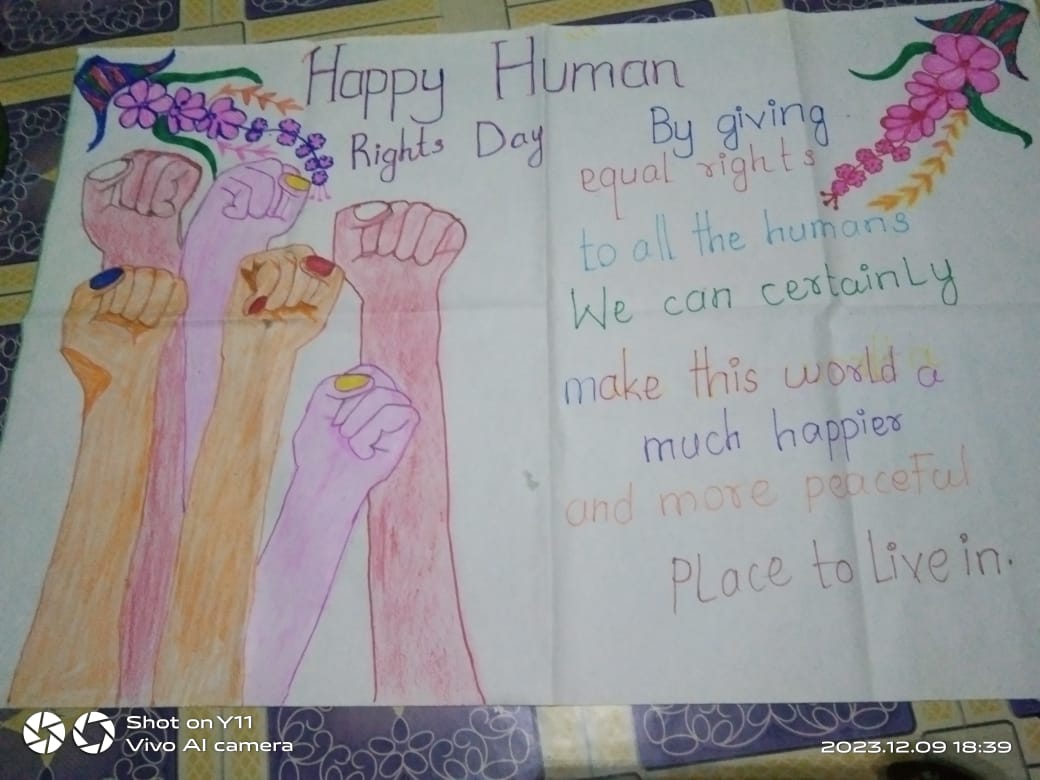 Happy Human
Rights Day
By giving
equal rights
to all the humans
We can certainly
make this world a
much happier
and more peaceful
Place to Live in.
Shot on Y11
Vivo AI camera
2023.12.09 18:39